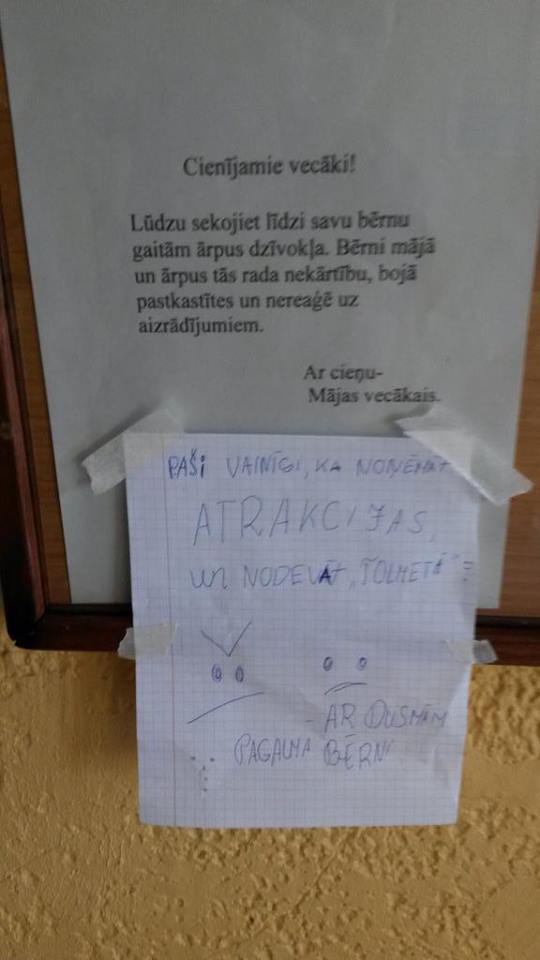 Cienījamie vecāki!
Lūdzu sekojiet līdzi savu bērnu
gaitām ārpus dzīvokļa. Bērni mājā
un ārpus tās rada nekārtību, bojā
pastkastītes un nereaģē uz
aizrādījumiem.
Ar cieņu-
Mājas vecākais.
PAŠI VAINĪGI, KA NOŅĒMĀT
ATRAKCIJAS,
UN NODEVĀT „TOLMETĀ"?
- AR DUSMĀM
PAGALMA BĒRNI